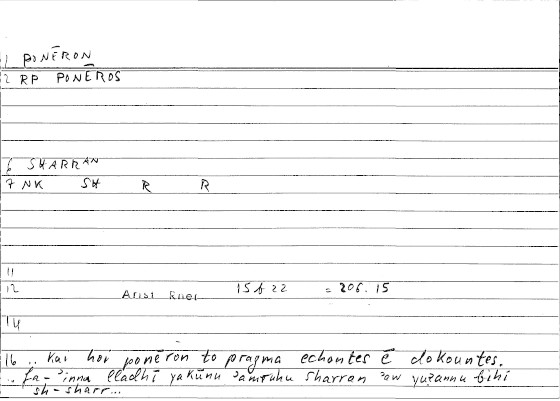 1 PONĒRON
2 RP PONĒROS
6 SHARRAN
7 NK SH R R
11
12 Arist Rhet 15b22 = 206.15
14
16 .. kai hoi ponēron to pragma echontes ē dokountes.
.. fa-ʾinna lladhī yakūnu ʾamruhu sharran ʾaw yuẓannu bihi
sh-sharr...